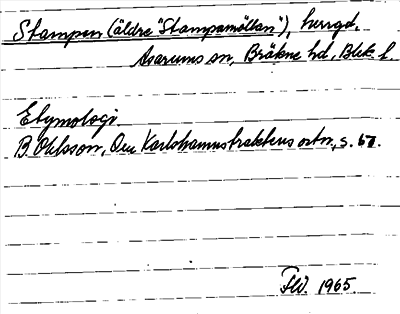 Stampen (äldre "Stampamöllan"), herrgd,
Asarums sn, Bräkne hd, Blek. l.
Etymologi.
B. Ohlsson, Om Karlshamnstraktens ortn., s. 67.
FW. 1965.